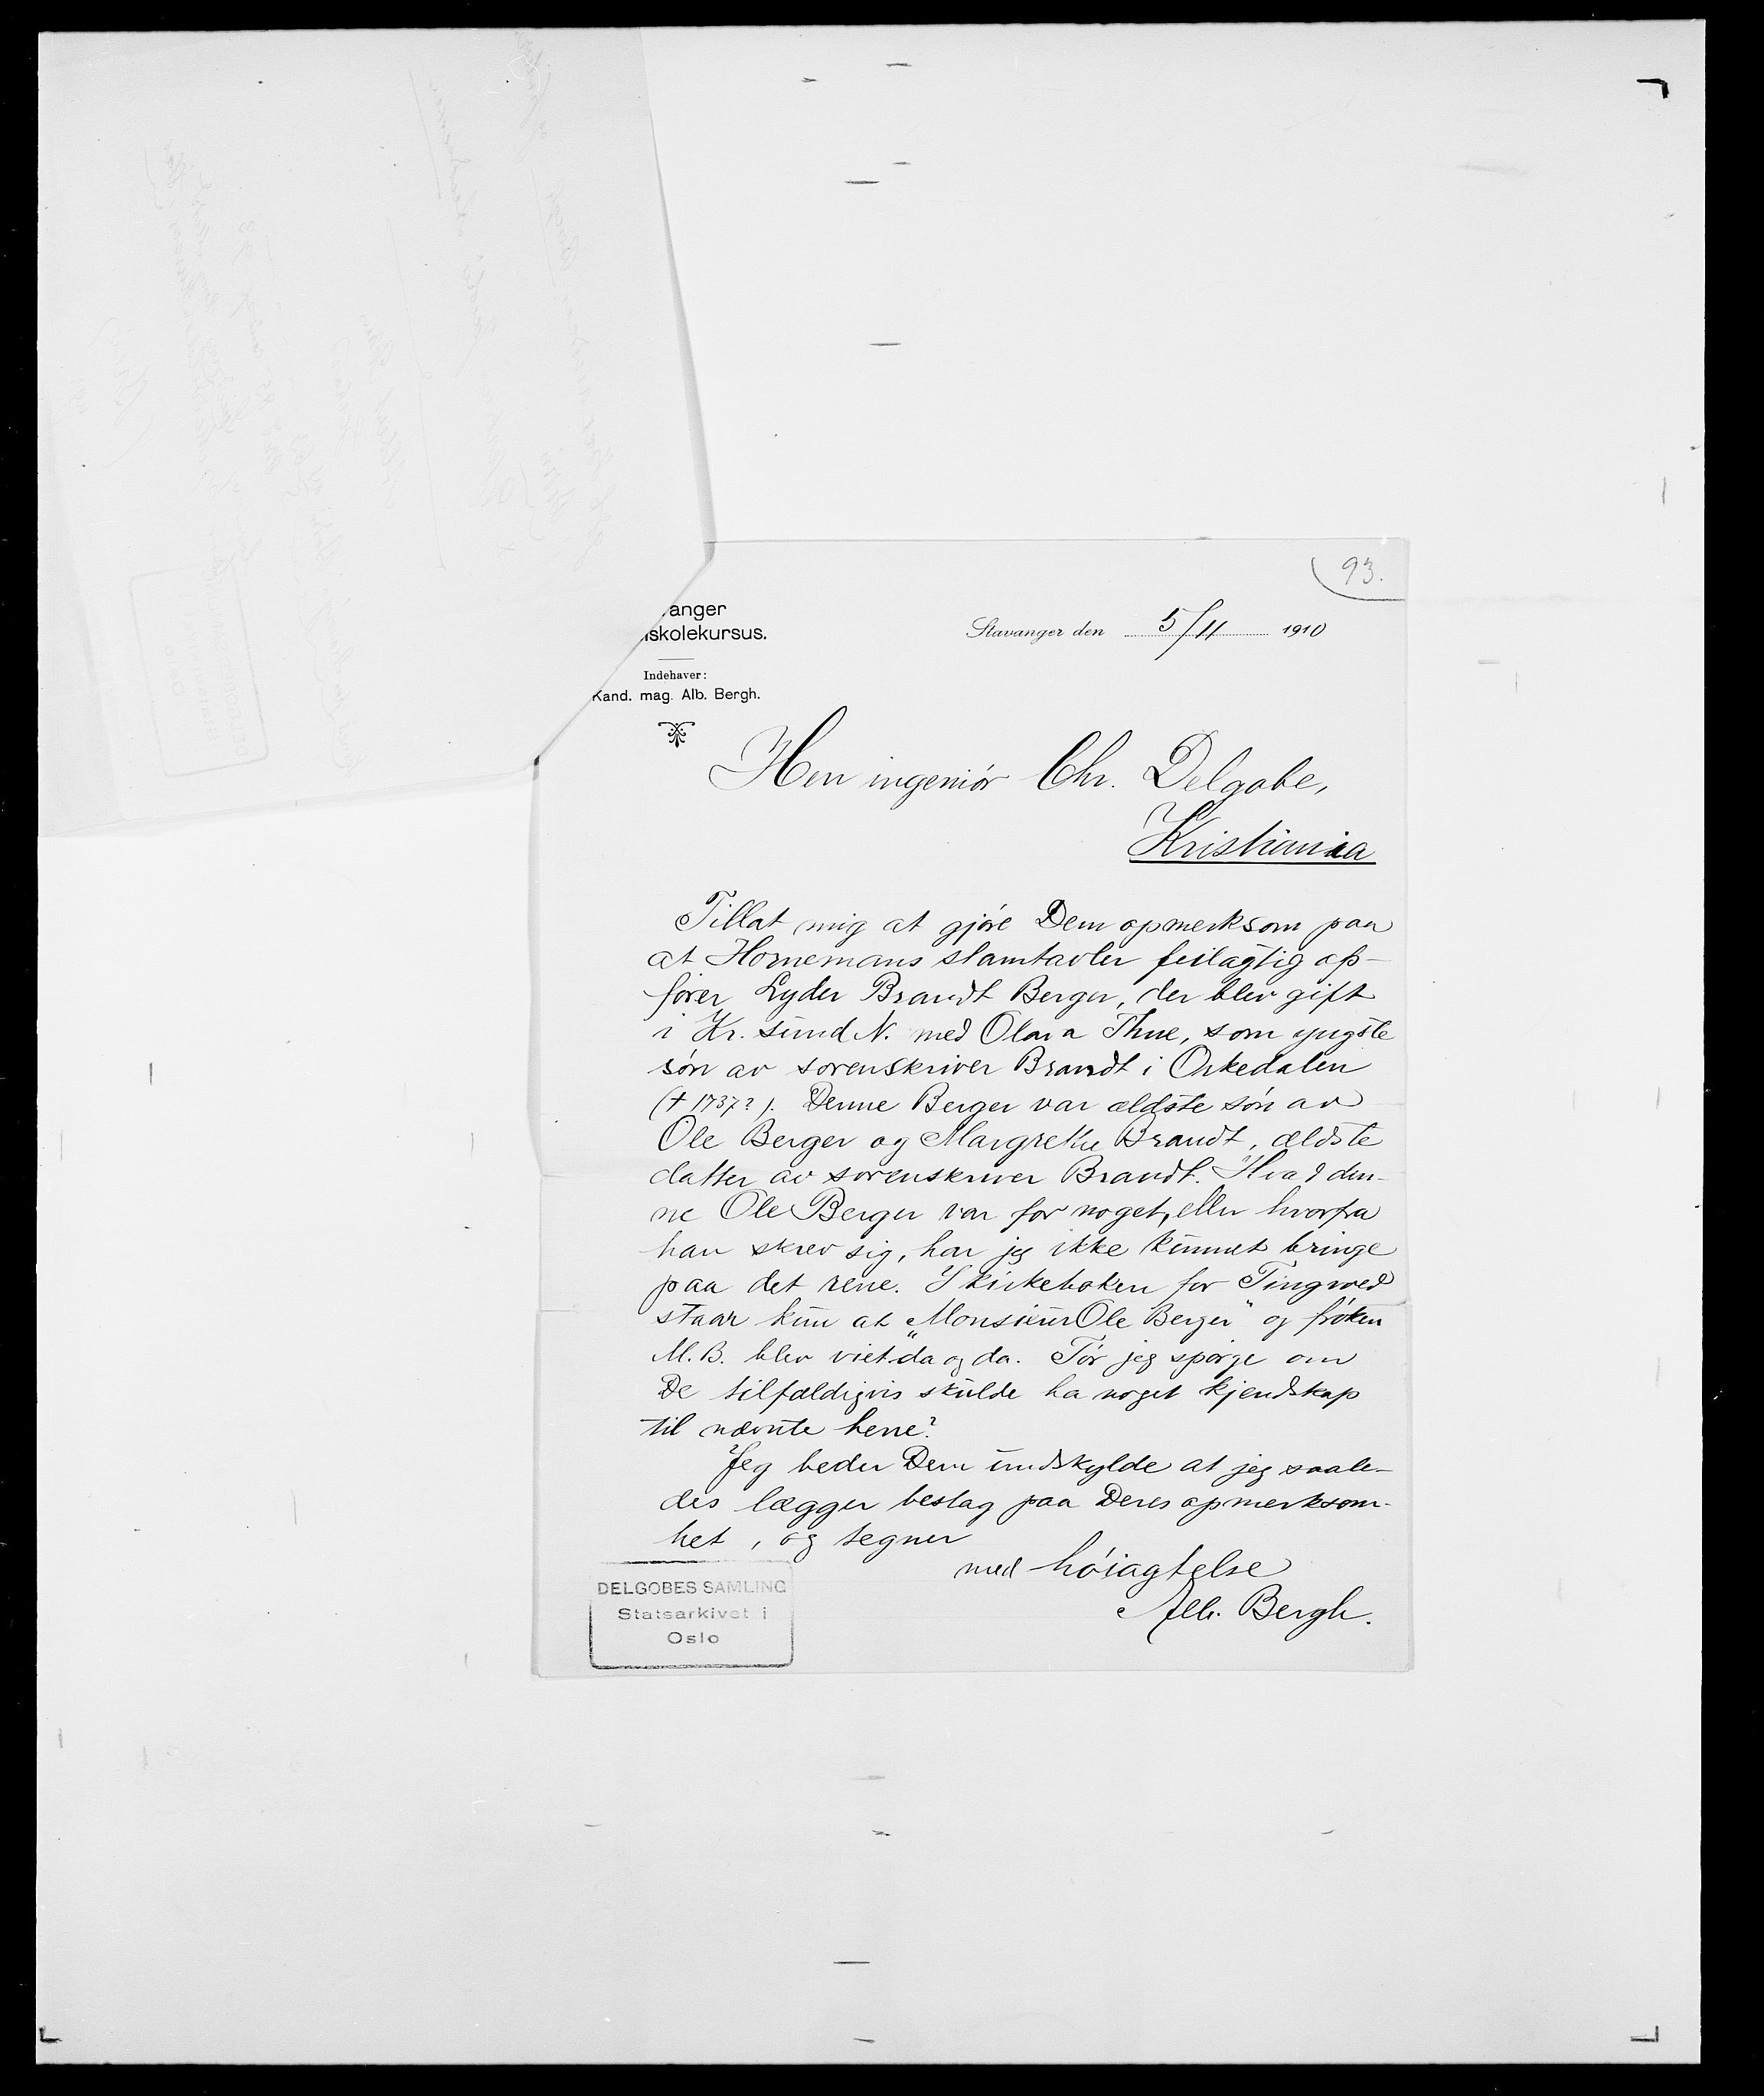 93.
anger
skolekursus.
Indehaver:
Kand. mag. Alb. Bergh.
Stavanger den 5/11 1910
Herr ingeniör Chr. Delgobe,
Kristiania
Tillat mig at gjöre Dem opmerksom paa
at Hornemans stamtavler feilagtig op-
förer Lyder Brandt Berger, der blev gift
i Kr. sund N. med Olava Thue, som yngste
sön av sorenskriver Brandt i Orkedalen
(† 1737?). Denne Berger var ældste sön av
Ole Berger og Margrethe Brandt, ældste
datter av sorenskriver Brandt. Hvad den-
ne Ole Berger var for noget, eller hvorfra
han skrev sig, har jeg ikke kunnet bringe
paa det rene. I kirkeboken for Tingvold
staar kun at „Monsieur Ole Berger" og fröken
M. B. blev viet da og da. Tör jeg spörge om
De tilfældigvis skulde ha noget kjendskap
til nævnte herre?
Jeg beder Dem undskylde at jeg saale-
des lægger beslag paa Deres opmerksom-
het, og tegner
med höiagtelse
Alb. Bergh.
DELGOBES SAMLING
Statsarkivet i
Oslo